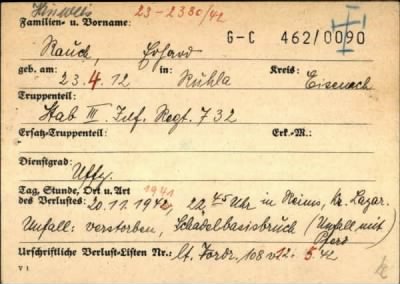 Hinweis 23-2380/42
Familien- u. Vorname:
G-C 462/0090
Rauch, Erhard
geb. am: in: Kreis:
23.4.12 Ruhla Eisenach
Truppenteil:
Stab III. Inf. Regt. 732
Ersatz-Truppenteil: Erk.-M.:
Dienstgrad:
Uffz.
Tag, Stunde, Ort u. Art 1941
des Verlustes: 20.11.1942, 22 45 Uhr in Reims, Kr. Lazar.
Unfall: verstorben, Schädelbasisbruch (Unfall mit
Pferd
Urschriftliche Verlust-Listen Nr.: lt. Fordr. 108 v. 12. 5. 42
V 1